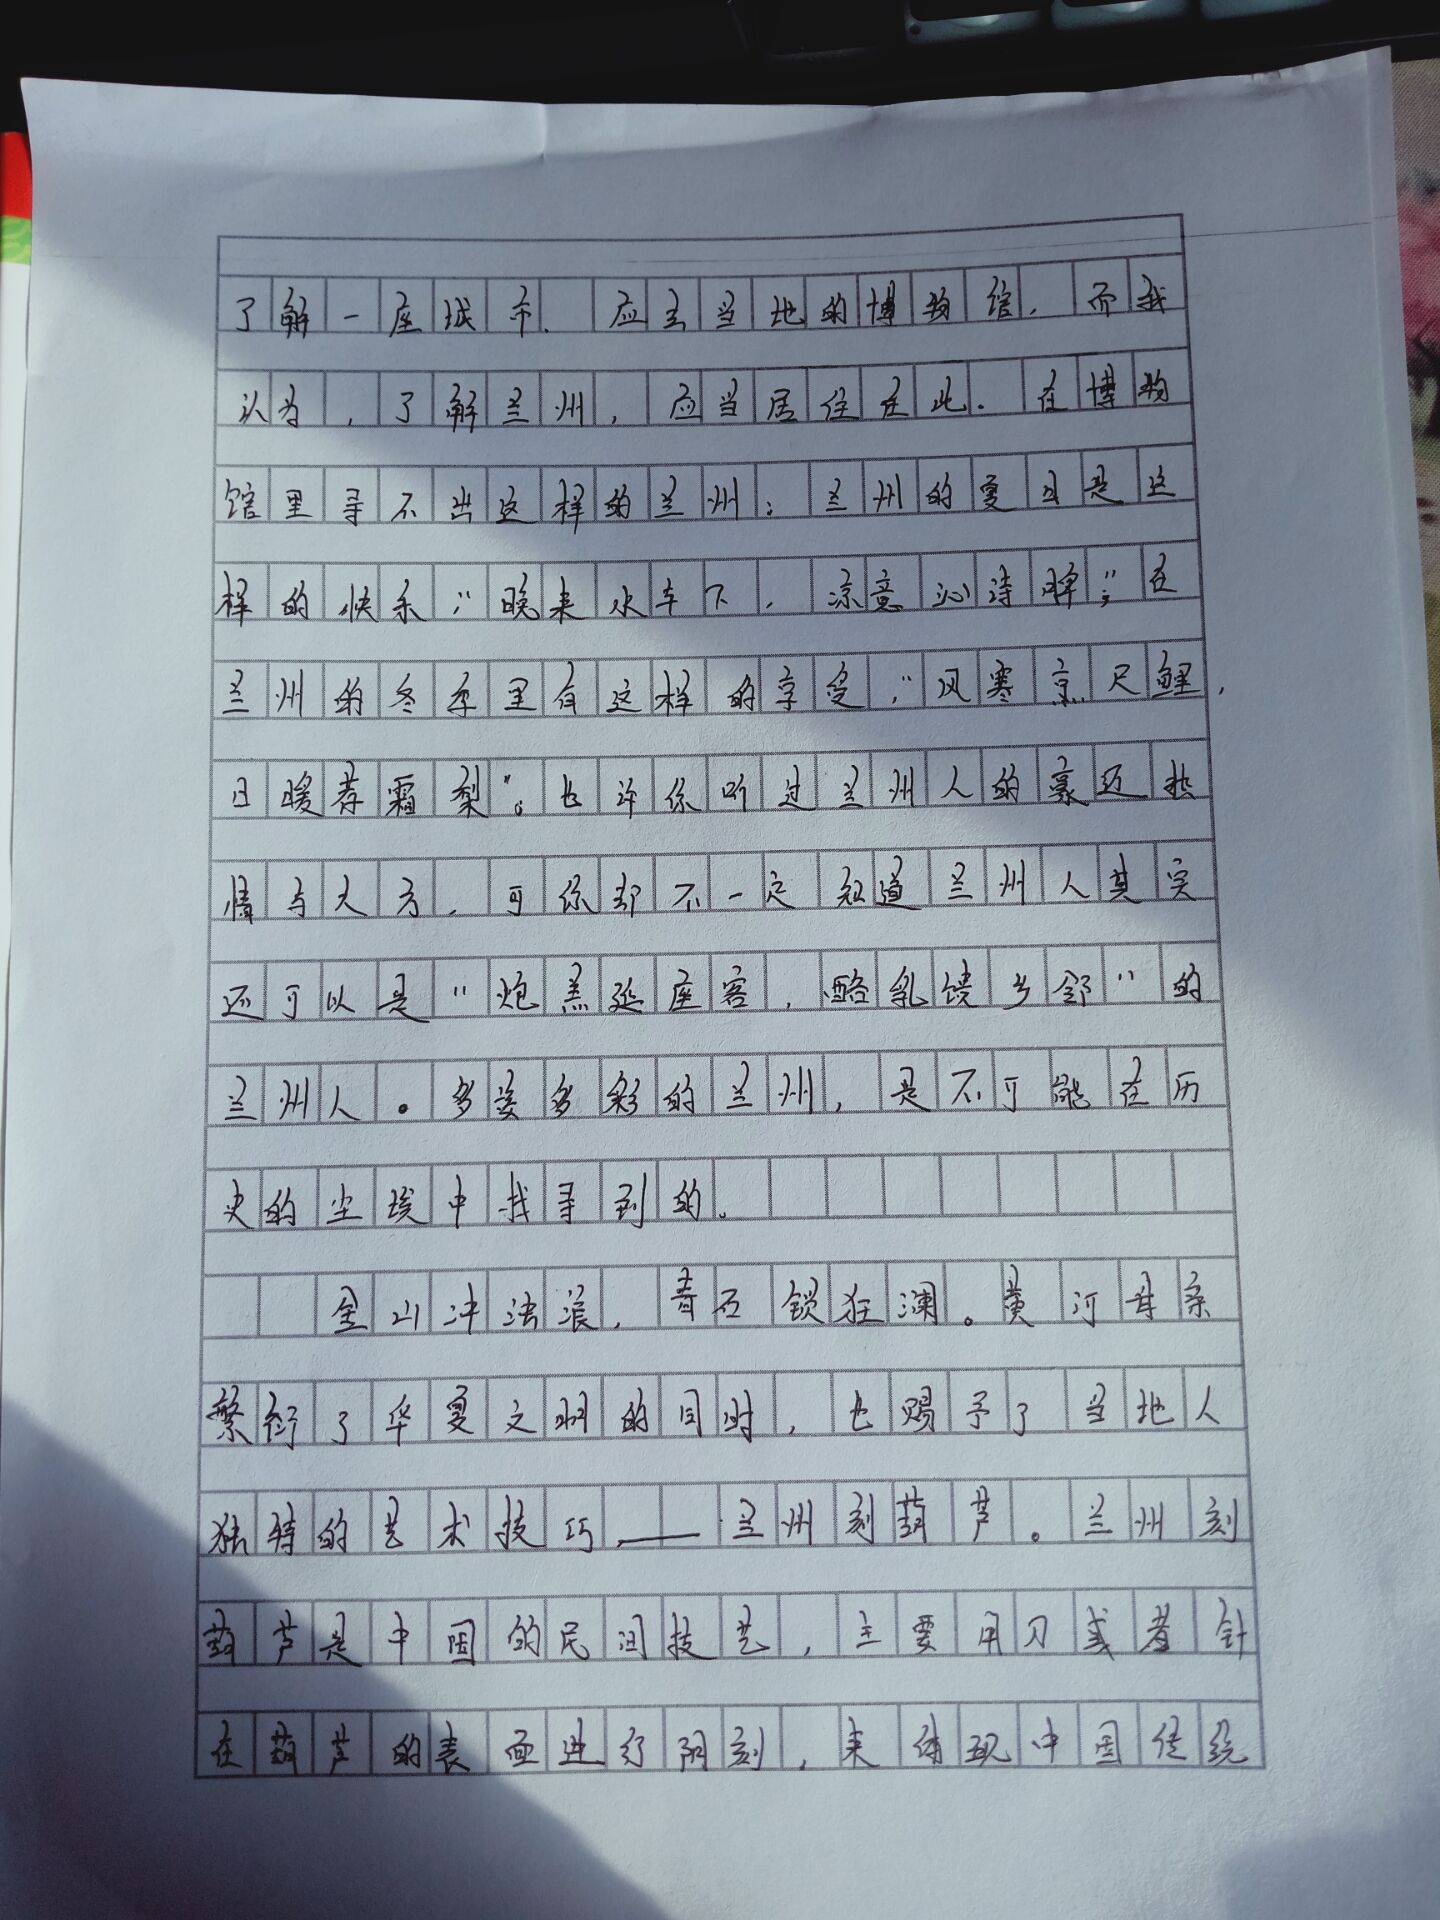 了解一座城市，应去当地的博物馆，而我
认为，了解兰州，应当居住在此。在博物
馆里寻不出这样的兰州；兰州的夏日是这
样的快乐，“晚来水车下，凉意沁诗脾”；在
兰州的冬季里有这样的享受，“风寒烹尺鲤，
日暖荐霜梨”。也许你听过兰州人的豪迈热
情与大方，可你却不一定知道兰州人其实
还可以是“炮羔延座客，酪乳馈乡邻”的
兰州人。多姿多彩的兰州，是不可能在历
史的尘埃中找寻到的。
金山冲浊浪，青石锁狂澜。黄河母亲
繁衍了华夏文明的同时，也赐予了当地人
独特的艺术技巧——兰州刻葫芦。兰州刻
葫芦是中国的民间技艺，主要用刀或者针
在葫芦的表面进行阴刻，来体现中国传统